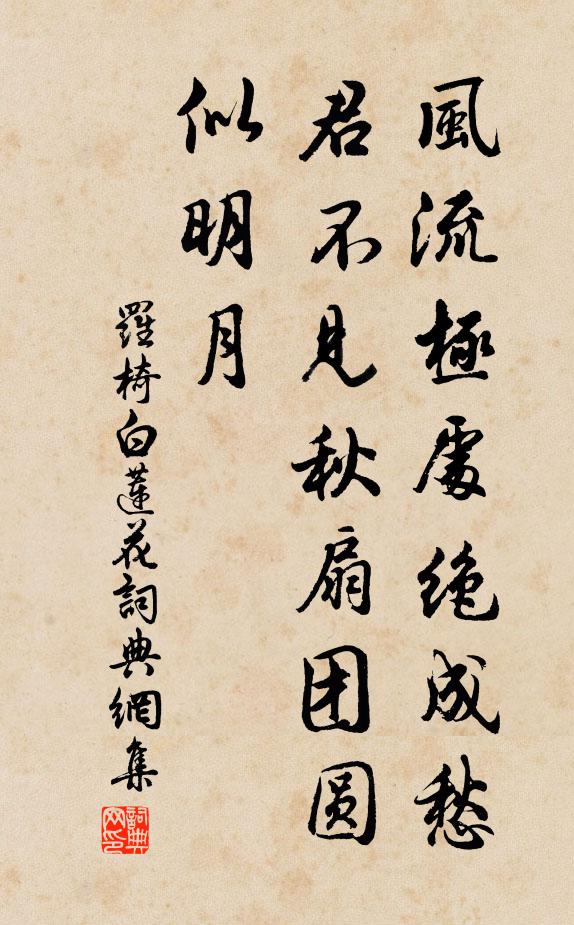 風流極處绝成愁
君不見秋扇团圆
似明月
羅椅白蓮花詞典網集
詞典网印